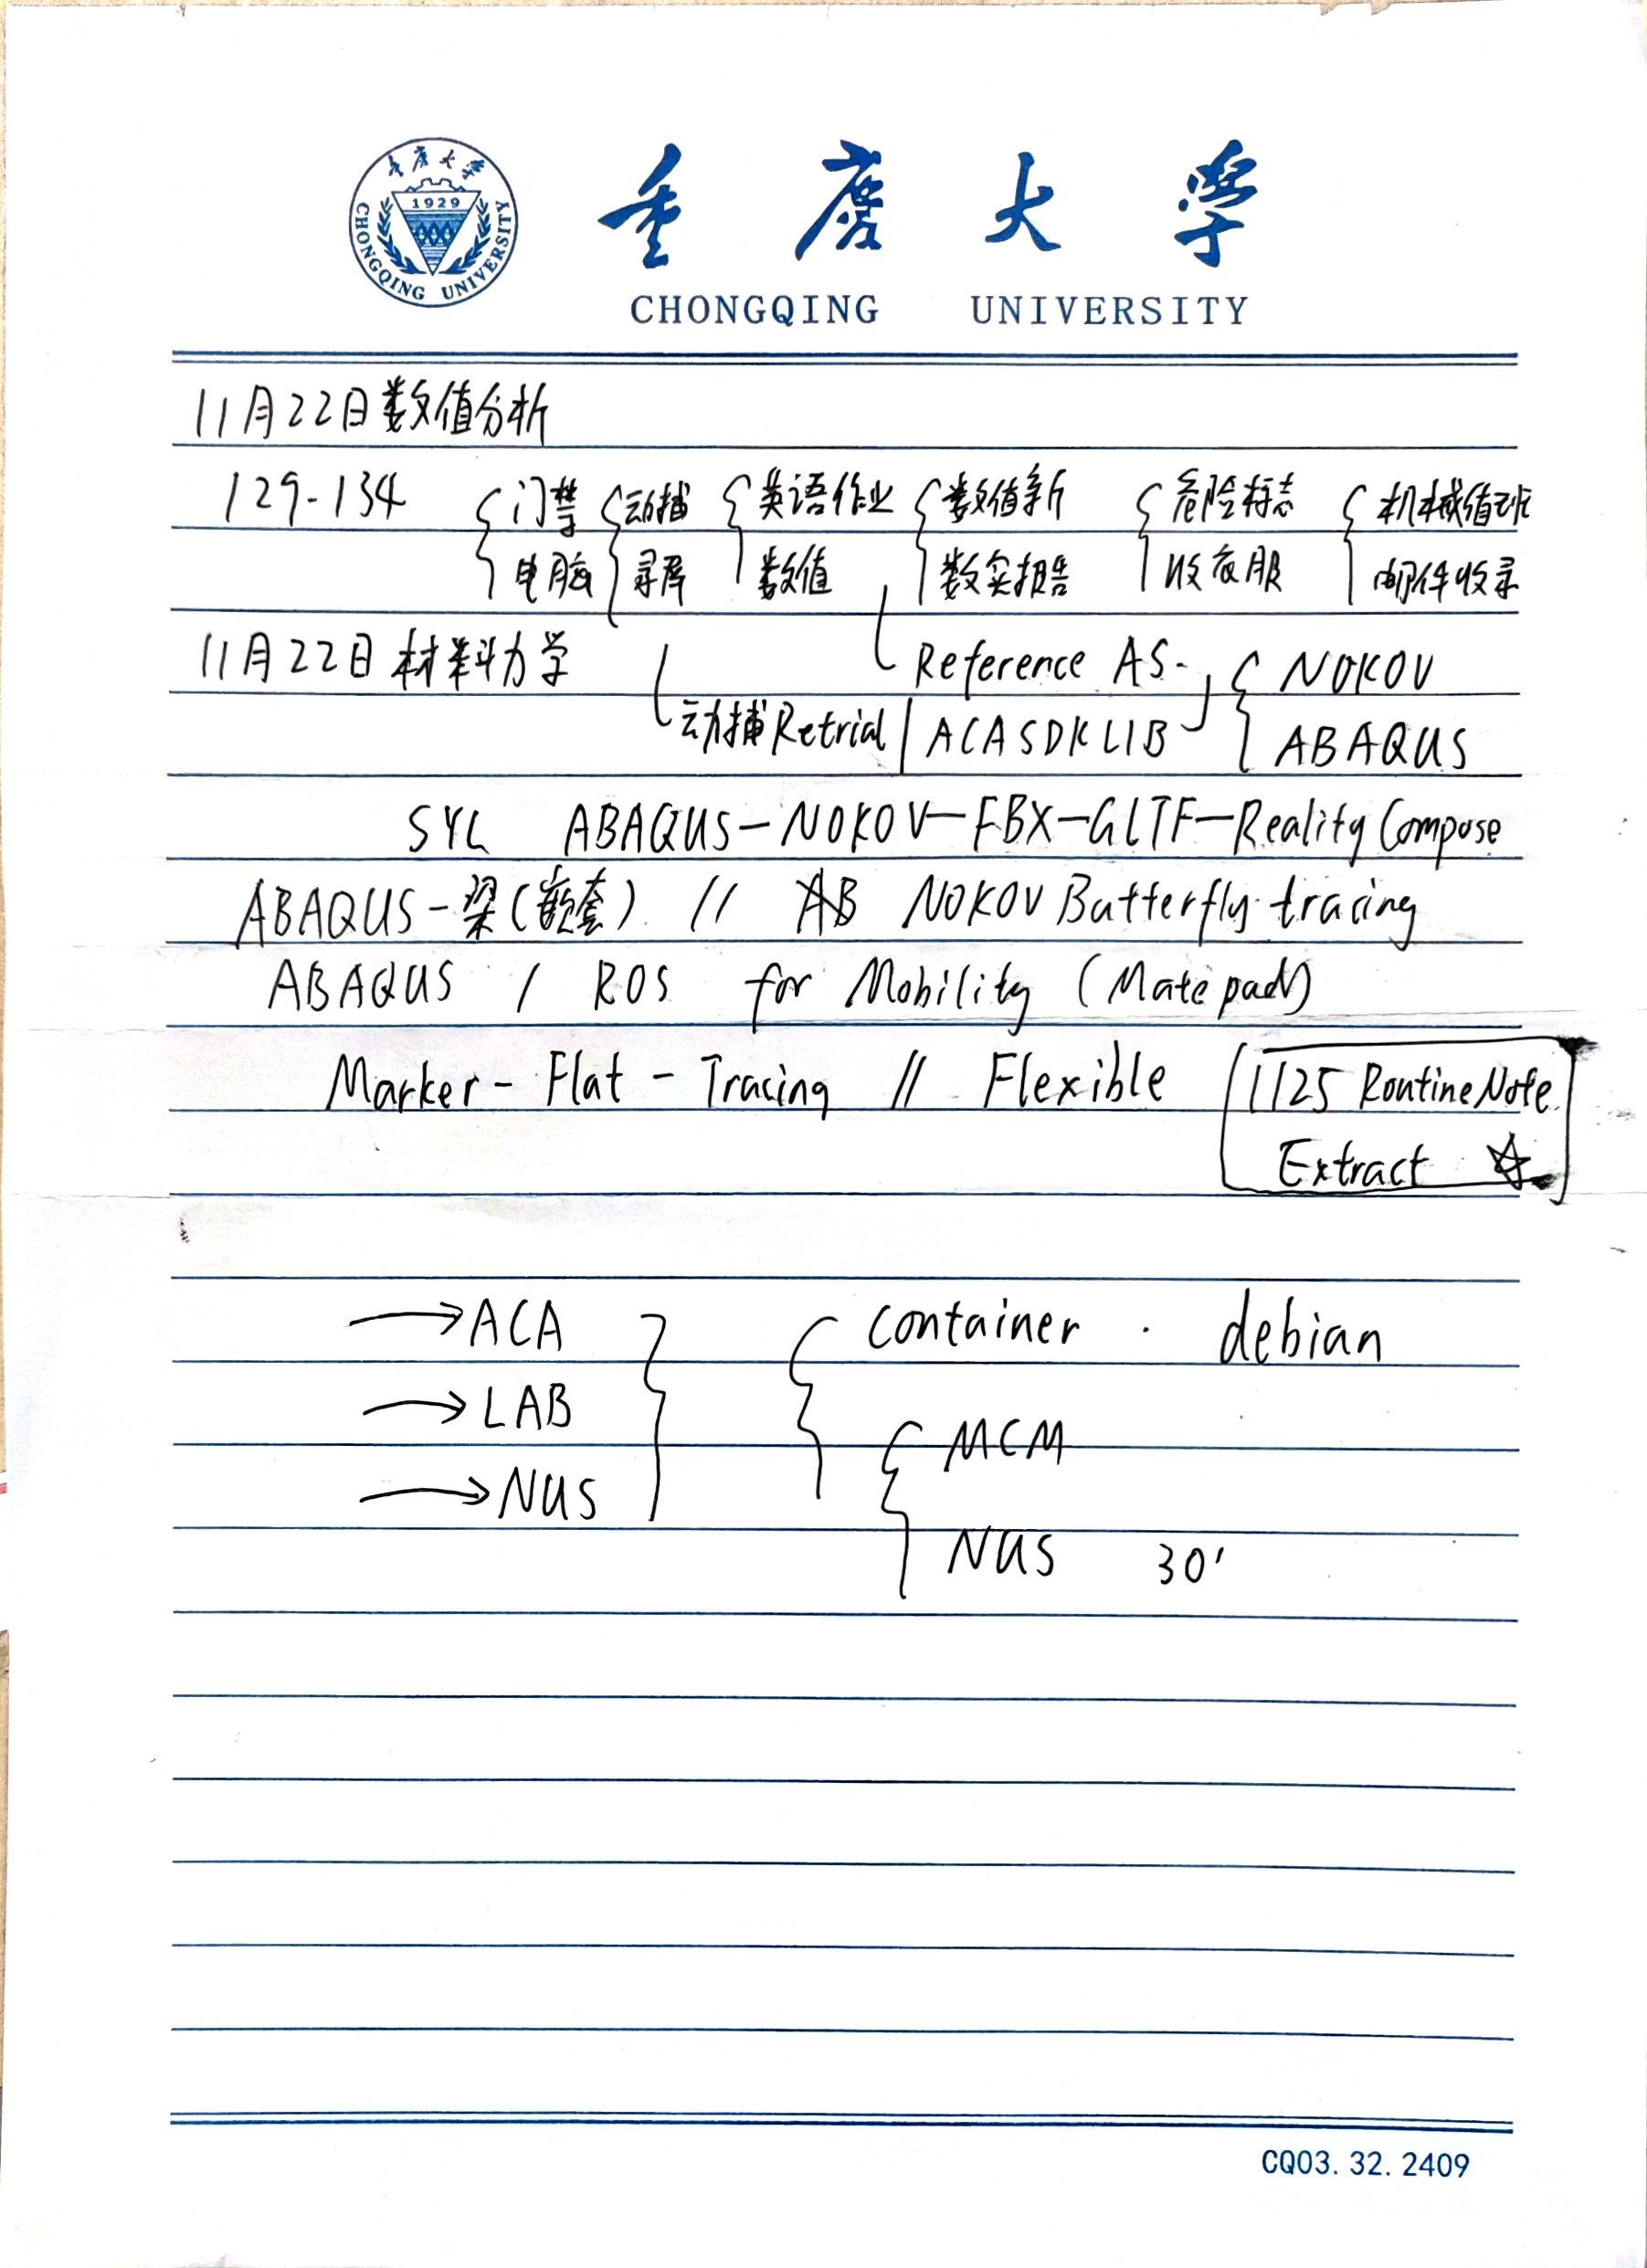 重庆大学
1929
CHONGQING UNIVERSITY
重庆大学
CHONGQING UNIVERSITY
11月22日数值分析
129-134 门禁 动捕 英语作业 数值新 危险标志 机械值班
电脑 寻库 数值 数实报告 收衣服 邮件收录
11月22日材料力学 Reference AS- NOKOV
动捕Retrial ACASDKLIB ABAQUS
SYL ABAQUS-NOKOV-FBX-GLTF-Reality Compose
ABAQUS-梁(嵌套) // AB NOKOV Butterfly tracing
ABAQUS / ROS for Mobility (Matepad)
Marker-Flat-Tracing // Flexible 1125 Routine Note.
Extract ☆
→ACA container · debian
→LAB MCM
→NUS NUS 30'
CQ03.32.2409